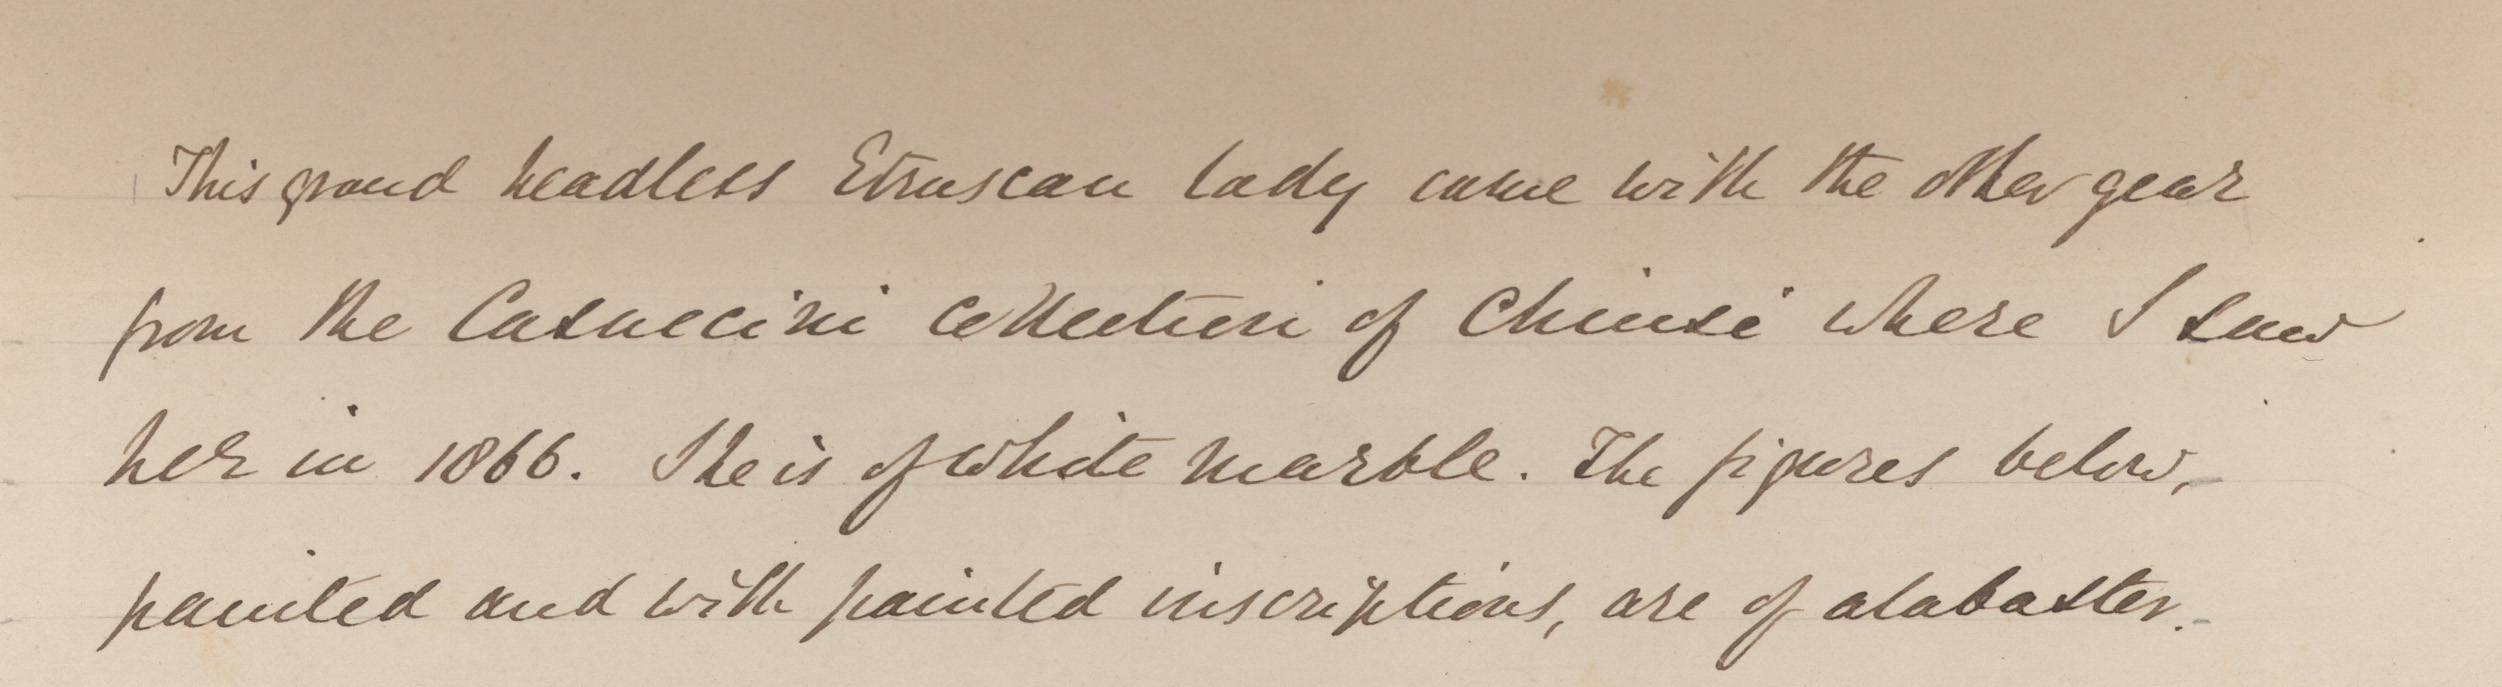 This grand headless Etruscan lady came with the other gear
from the Casuccini collection of Chiusi where I saw
her in 1866. She is of white marble. The figures below,
painted and with painted inscriptions, are of alabaster.